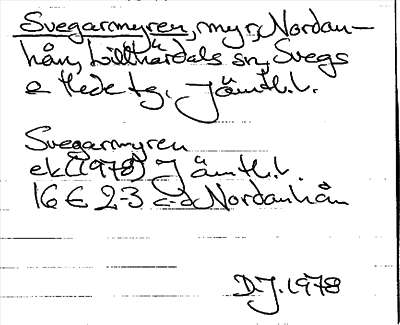 Svegarmyren, myr, Nordan-
hån, Lillhärdals sn, Svegs
o Hede tg, Jämtl. l.
Svegarmyren
ek (1978) Jämtl. l.
16 E 2-3 c-d Nordanhån
D.J. 1978